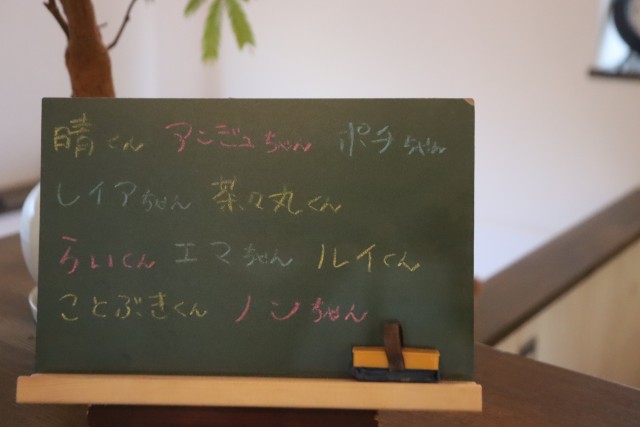 晴くん アンジュちゃん ポチちゃん
レイアちゃん 茶々丸くん
らいくん エマちゃん ルイくん
ことぶきくん ノンちゃん